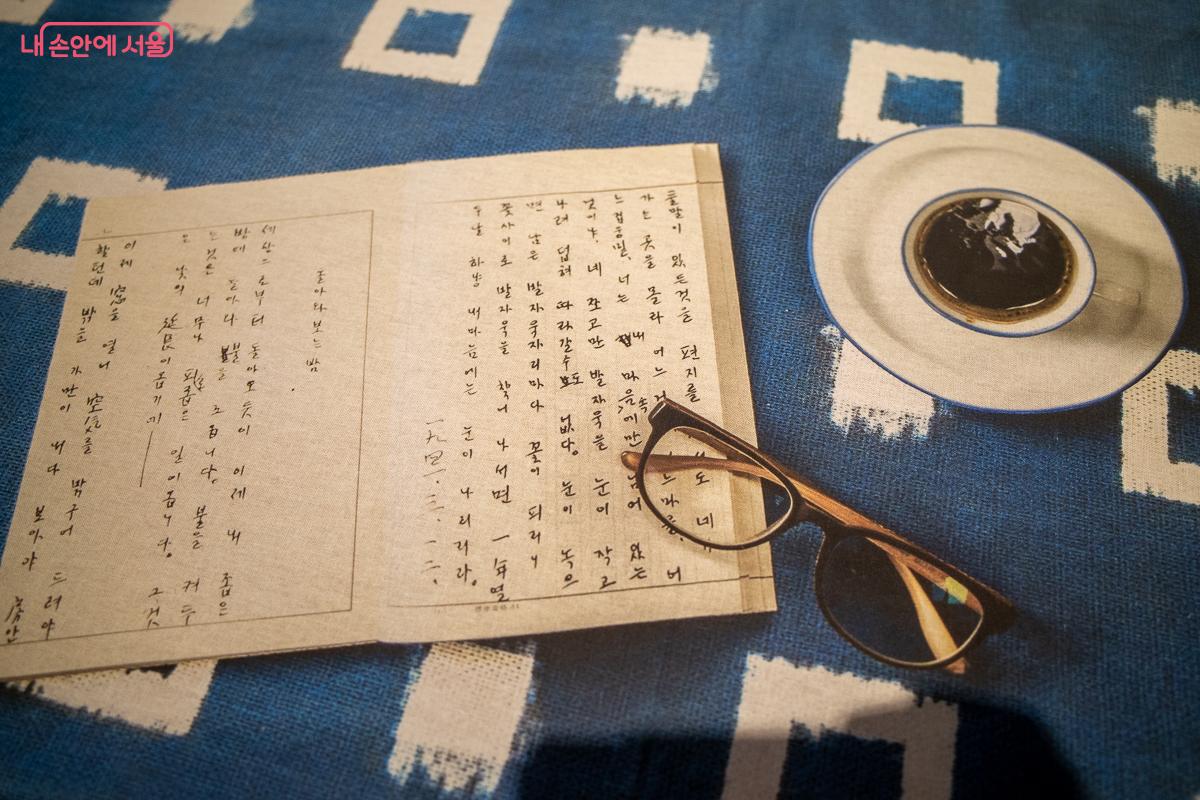 내 손안에 서울
둘말이 있든것을 편지를 네
가는 곳을 몰라 어느 느마을, 어
느집웅밑, 너는 내 마음속에만 남어 있는
것이냐, 네 쪼고만 발자욱을 눈이 작고
나려 덥혀 따라갈수도 없다. 눈이 녹으
면 남은 발자욱자리마다 꽃이 피리니
꽃사이로 발자욱을 찾어 나서면 一年열
두달 하냥 내마음에는 눈이 나리리라.
一九四一.三.一二.
돌아와보는밤
세상으로부터 돌아오듯이 이제 내 좁은
방에 돌아와 불을 끄옵니다. 불을 켜두
는것은 너무나 피로롭은 일이옵니다. 그것
은 낮의 延長이옵기에——
이제 窓을 열어 空氣를 밖구어 드려야
할턴데 밖을 가만이 내다 보아야 房안